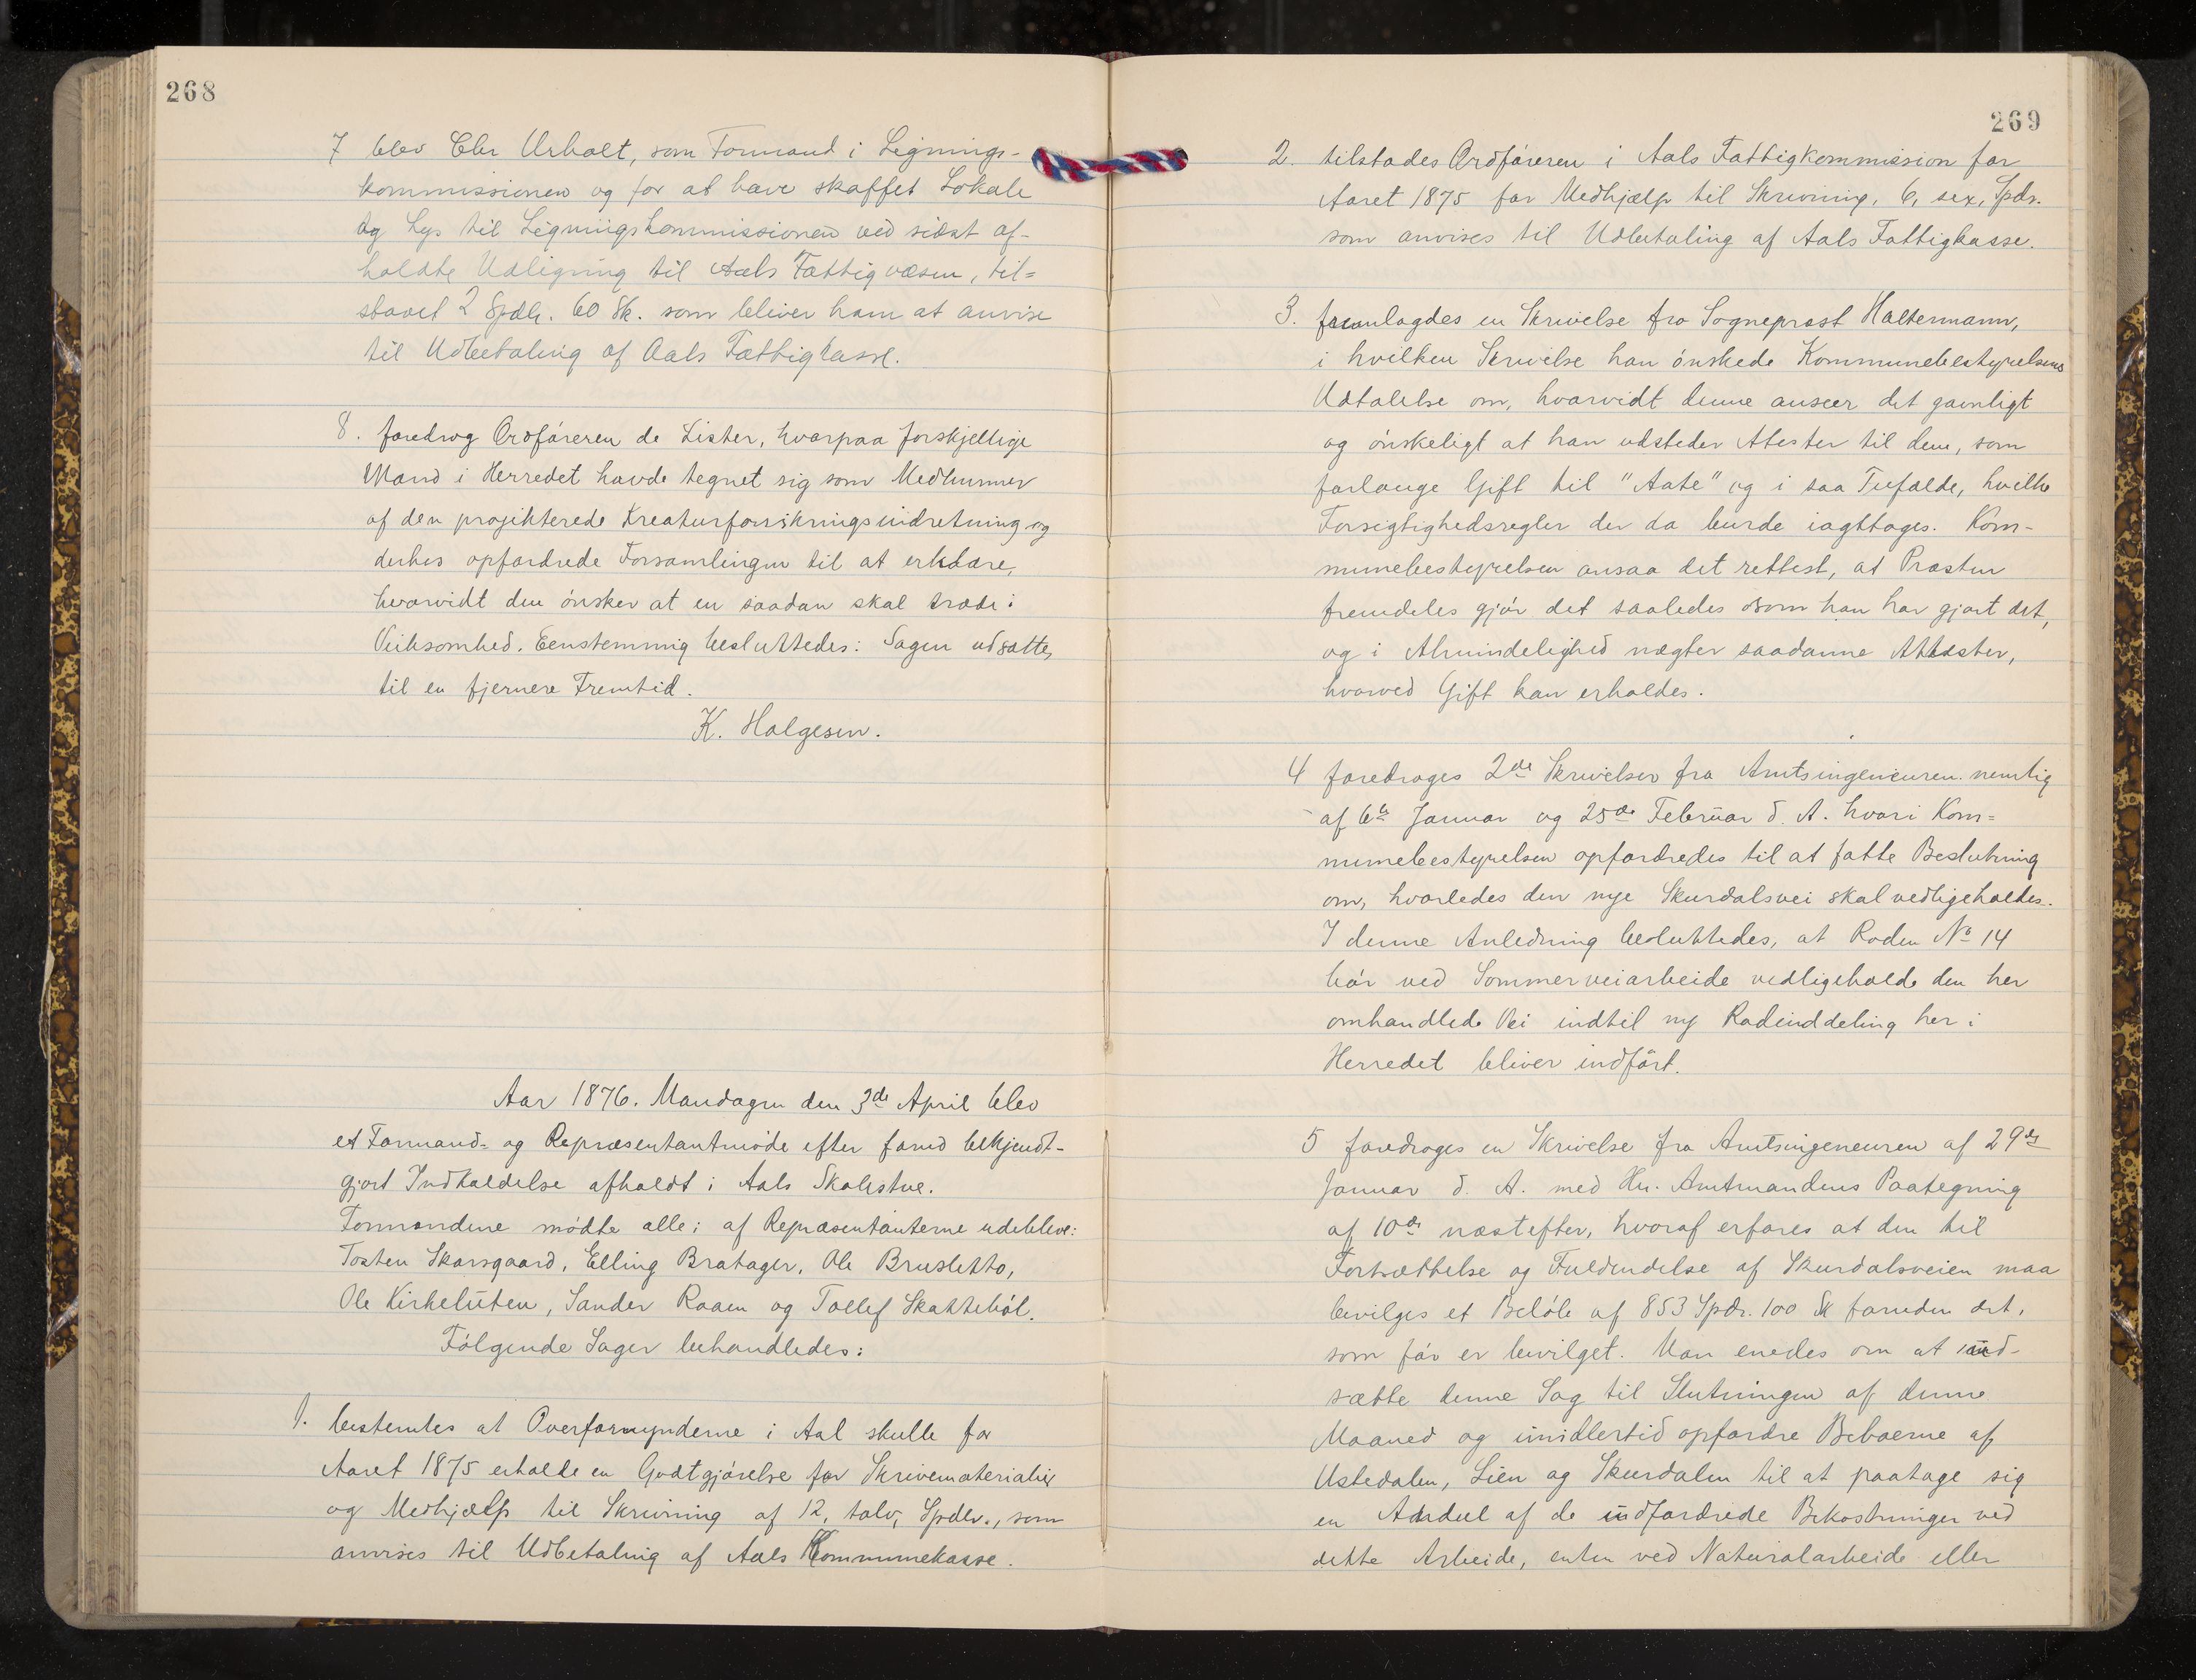 268
7 blev Chr Urholt, som Formand i Lignings-
kommissionen og for at have skaffet Lokale
og Lys til Ligningskommissionen ved sidst af-
holdte Udligning til Aals Fattigvæsen, til=
staaet 2 Spdlr. 60 Sk. som bliver ham at anvise
til Udbetaling af Aals Fattigkasse.
8. foredrog Ordføreren de Lister, hvorpaa forskjellige
Mænd i Herredet havde tegnet sig som Medlemmer
af den projekterede Kreaturforsikringsindretning og
derhos opfordrede Forsamlingen til at erklære,
hvorvidt den ønsker at en saadan skal træde i
Virksomhed. Eenstemmig besluttedes: Sagen udsættes
til en fjernere Fremtid.
K. Halgesen.
Aar 1876. Mandagen den 3de April blev
et Formand- og Repræsentantmøde efter forud bekjendt-
gjort Indkaldelse afholdt i Aals Skolestue.
Formændene mødte alle; af Repræsentanterne udebleve:
Tosten Skarsgaard, Elling Bratager, Ole Brusletto,
Ole Kirkeluten, Sander Raaen og Tollef Skattebøl.
Følgende Sager behandledes:
1. bestemtes at Overformynderne i Aal skulle for
Aaret 1875 erholde en Godtgjørelse for Skrivematerialier
og Medhjælp til Skrivning af 12, tolv, Spdlr., som
anvises til Udbetaling af Aals Kommunekasse.
269
2. tilstodes Ordføreren i Aals Fattigkommission for
Aaret 1875 for Medhjælp til Skrivning, 6, sex, Spdr.
som anvises til Udbetaling af Aals Fattigkasse.
3. fremlagdes en Skrivelse fra Sogneprest Haltermann,
i hvilken Skrivelse han ønskede Kommunebestyrelsens
Udtalelse om, hvorvidt denne anseer det gavnligt
og ønskeligt at han udsteder Atester til dem, som
forlange Gift til "Aate" og i saa Tilfælde, hvilke
Forsigtighedsregler der da burde iagttages. Kom-
munebestyrelsen ansaa det rettest, at Præsten
fremdeles gjør det saaledes som han har gjort det,
og i Almindelighed nægter saadanne Attester,
hvorved Gift kan erholdes.
4 foredroges 2de Skrivelser fra Amtsingeniøuren nemlig
af 6te Januar og 25de Februar d. A. hvori Kom=
munebestyrelsen opfordredes til at fatte Beslutning
om, hvorledes den nye Skurdalsvei skal vedligeholdes.
I denne Anledning besluttedes, at Roden No 14
bør ved Sommerveiarbeide vedligeholde den her
omhandlede Vei indtil ny Rodeinddeling her i
Herredet bliver indført.
5 foredroges en Skrivelse fra Amtsingeneuren af 29de
Januar d. A. med Hr. Amtmandens Paategning
af 10de næstefter, hvoraf erfares at den til
Fortsættelse og Fuldendelse af Skurdalsveien maa
bevilges et Beløb af 853 Spdr. 100 Sk foruden det,
som før er bevilget. Man enedes om at ud-
sætte denne Sag til Slutningen af denne
Maaned og imidlertid opfordre Beboerne af
Ustedalen, Lien og Skurdalen til at paatage sig
en Andeel af de udfordrede Bekostninger ved
dette Arbeide, enten ved Naturalarbeide eller